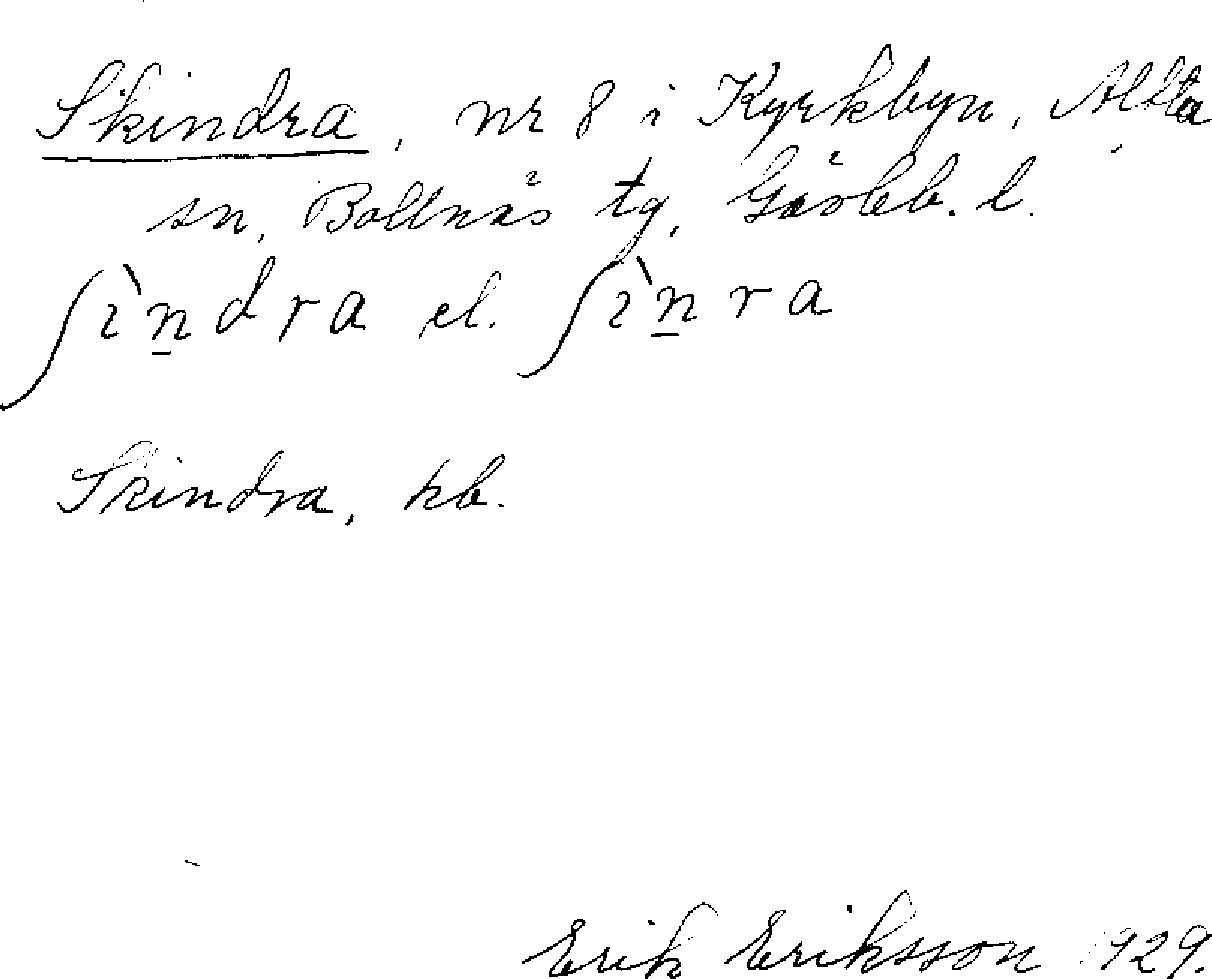 Skindra, nr 8 i Kyrkbyn, Alfta
sn, Bollnäs tg, Gävleb. l.
ʃìn̲dra el. ʃìn̲ra
Skindra, kb.
Erik Eriksson 1929.